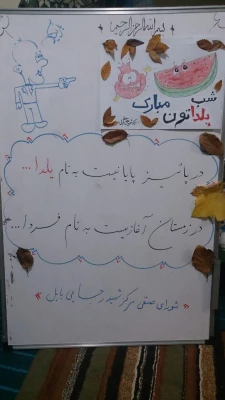 بسم الله الرحمن الرحیم
شب
یلداتون مبارک
در پائیز پایانیست به نام یلدا...
در زمستان آغازیست به نام فردا...
شورای صنفی مرکز شهید رجایی بابل